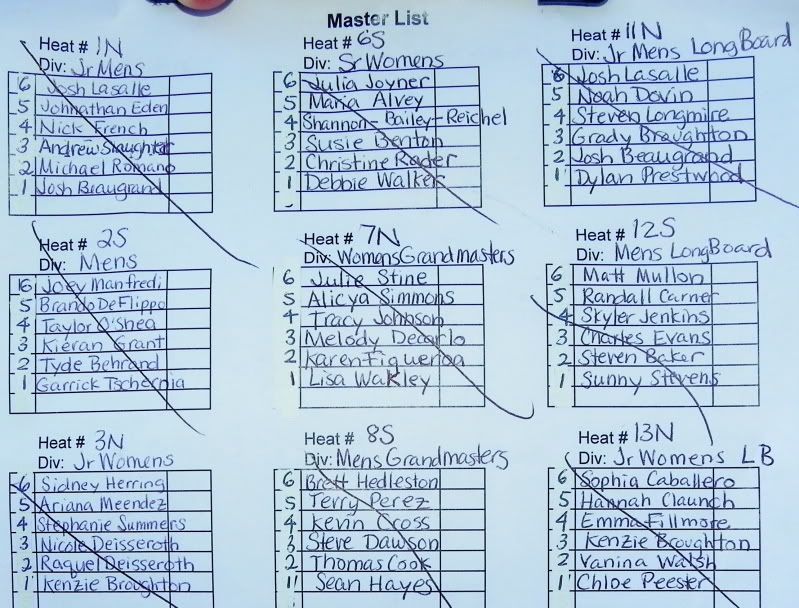 Master List
Heat # 1N
Div: Jr Mens
6 Josh Lasalle
5 Johnathan Eden
4 Nick French
3 Andrew Slaughter
2 Michael Romano
1 Josh Braugrand
Heat # 6S
Div: Sr Womens
6 Julia Joyner
5 Maria Alvey
4 Shannon-Bailey-Reichel
3 Susie Benton
2 Christine Rader
1 Debbie Walker
Heat # 11N
Div: Jr Mens LongBoard
6 Josh Lasalle
5 Noah Dovin
4 Steven Longmire
3 Grady Broughton
2 Josh Beaugrand
1 Dylan Prestwood
Heat # 2S
Div: Mens
6 Joey Manfredi
5 Brando DeFlippo
4 Taylor O'Shea
3 Kieran Grant
2 Tyde Behrand
1 Garrick Tschernia
Heat # 7N
Div: Womens Grandmasters
6 Julie Stine
5 Alicya Simmons
4 Tracy Johnson
3 Melody Decarlo
2 Karen Figueroa
1 Lisa Wakley
Heat # 12S
Div: Mens LongBoard
6 Matt Mullon
5 Randall Carner
4 Skyler Jenkins
3 Charles Evans
2 Steven Baker
1 Sunny Stevens
Heat # 3N
Div: Jr Womens
6 Sidney Herring
5 Ariana Meendez
4 Stephanie Summers
3 Nicole Deisseroth
2 Raquel Deisseroth
1 Kenzie Broughton
Heat # 8S
Div: Mens Grandmasters
6 Brett Hedleston
5 Terry Perez
4 Kevin Cross
3 Steve Dawson
2 Thomas Cook
1 Sean Hayes
Heat # 13N
Div: Jr Womens LB
6 Sophia Caballero
5 Hannah Claunch
4 Emma Fillmore
3 Kenzie Broughton
2 Vanina Walsh
1 Chloe Peester